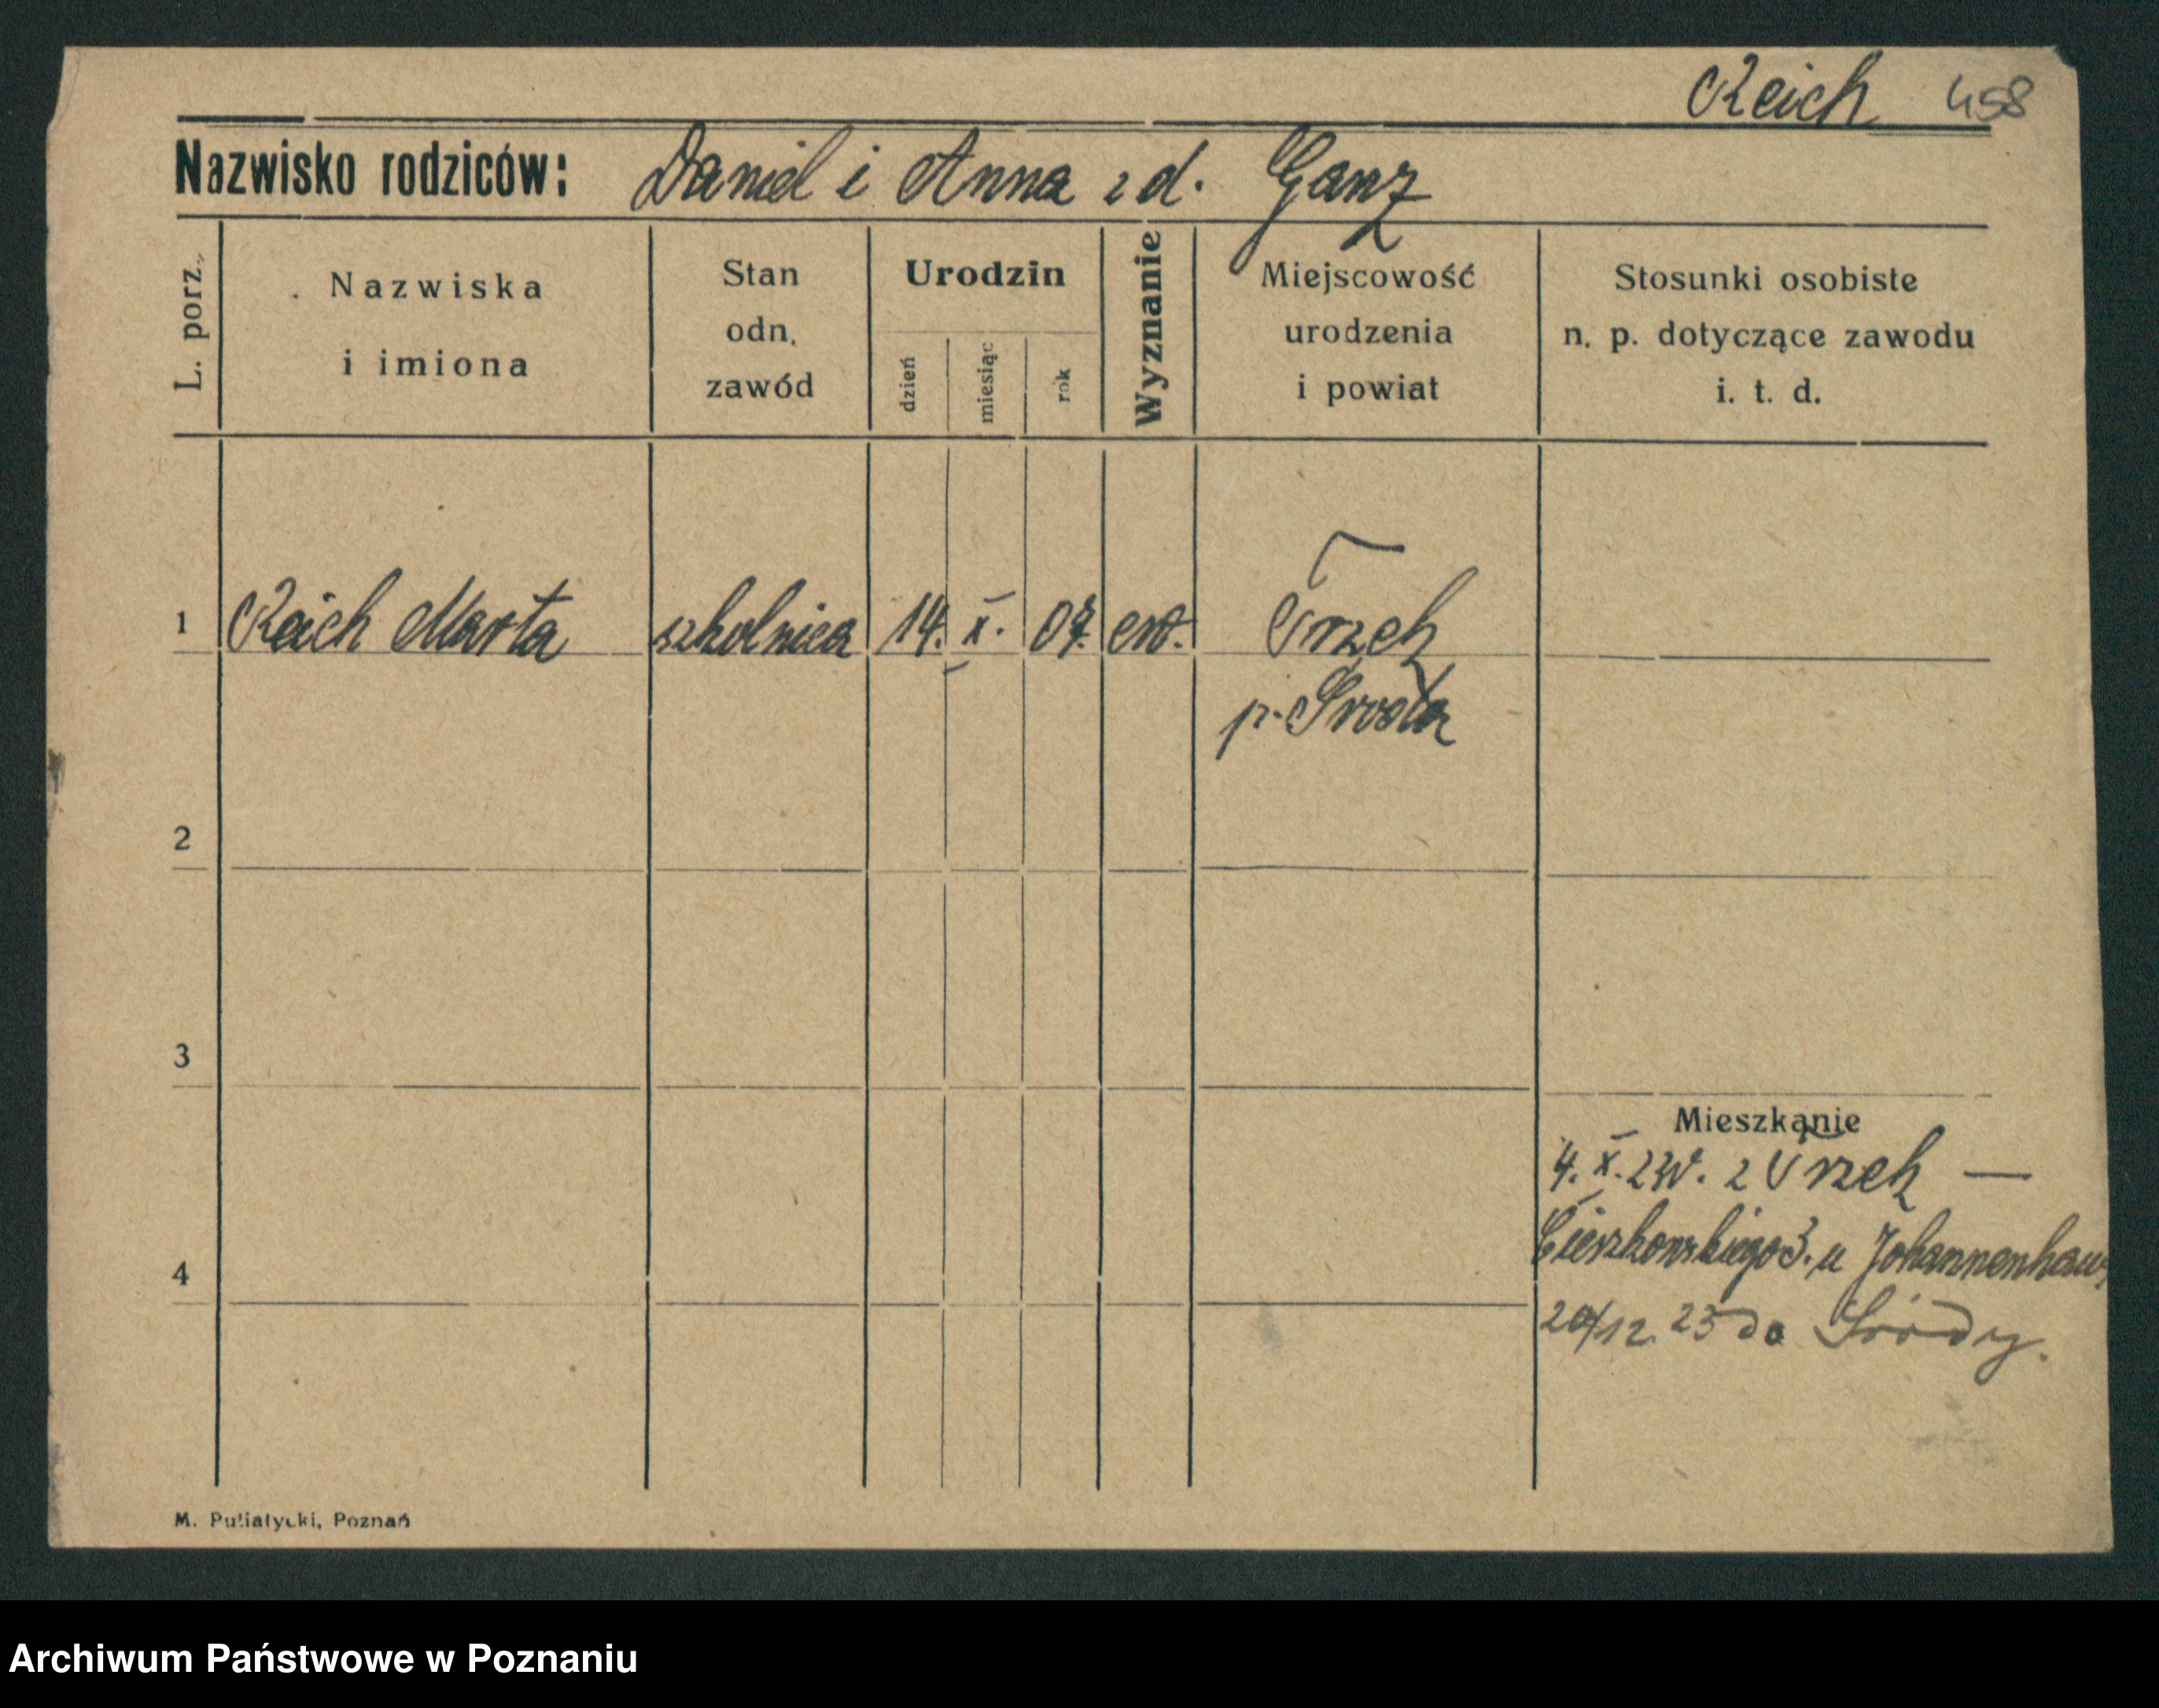 Reich 458
Nazwisko rodziców: Daniel i Anna z d. Ganz
L. porz.
Nazwiska
i imiona
Stan
odn.
zawód
Urodzin
dzień
miesiąc
rok
Wyznanie
Miejscowość
urodzenia
i powiat
Stosunki osobiste
n. p. dotyczące zawodu
i. t. d.
1 Reich Marta szkolnica 14. X. 07. ew. Trzek
p. Środa
2
3
4
Mieszkanie
4. X. z Trzek —
Cieszkowskiego 3. u Johannenhaus
20/12. 23 do Środy.
M. Poznań
Archiwum Państwowe w Poznaniu